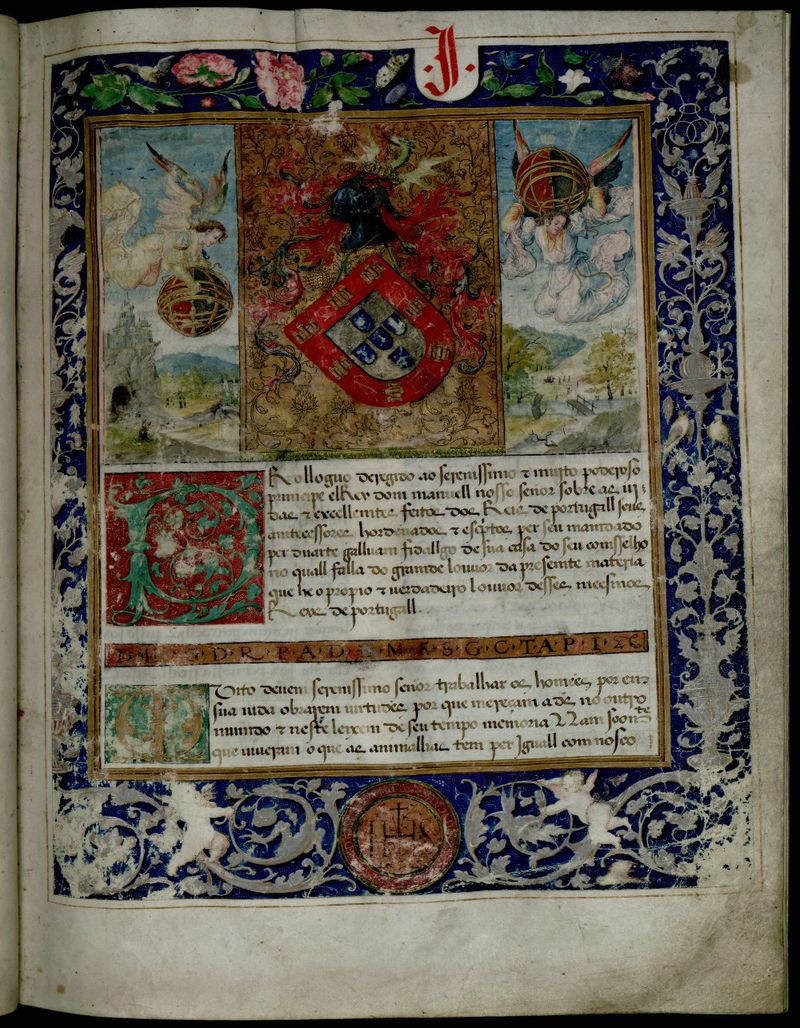 J.
Rolloguo deregido ao serenissimo & muito poderoso
principe el Rey dom manuell nosso señor sobre as vi-
das & excellentes feitos dos Reis de portugall seus
antecessores hordenados & escptos per seu mandado
per duarte gallvam fidallgo de sua casa do seu comsselho
no quall falla do grande louvor da presente materia
que he o propio & verdadeiro louvor desses meesmos
Reys de portugall.
D·R·P·A·D· M·R·S·G·C·T·A·P·I
Uito devem serenissimo señor trabalhar os homēes por em
sua vida obrarem virtudes por que mereçam a ds no outro
mundo & neste leixem de seu tempo memoria Nam soomte
que viveram o que as animallias tem per Iguall comnosco
IHS